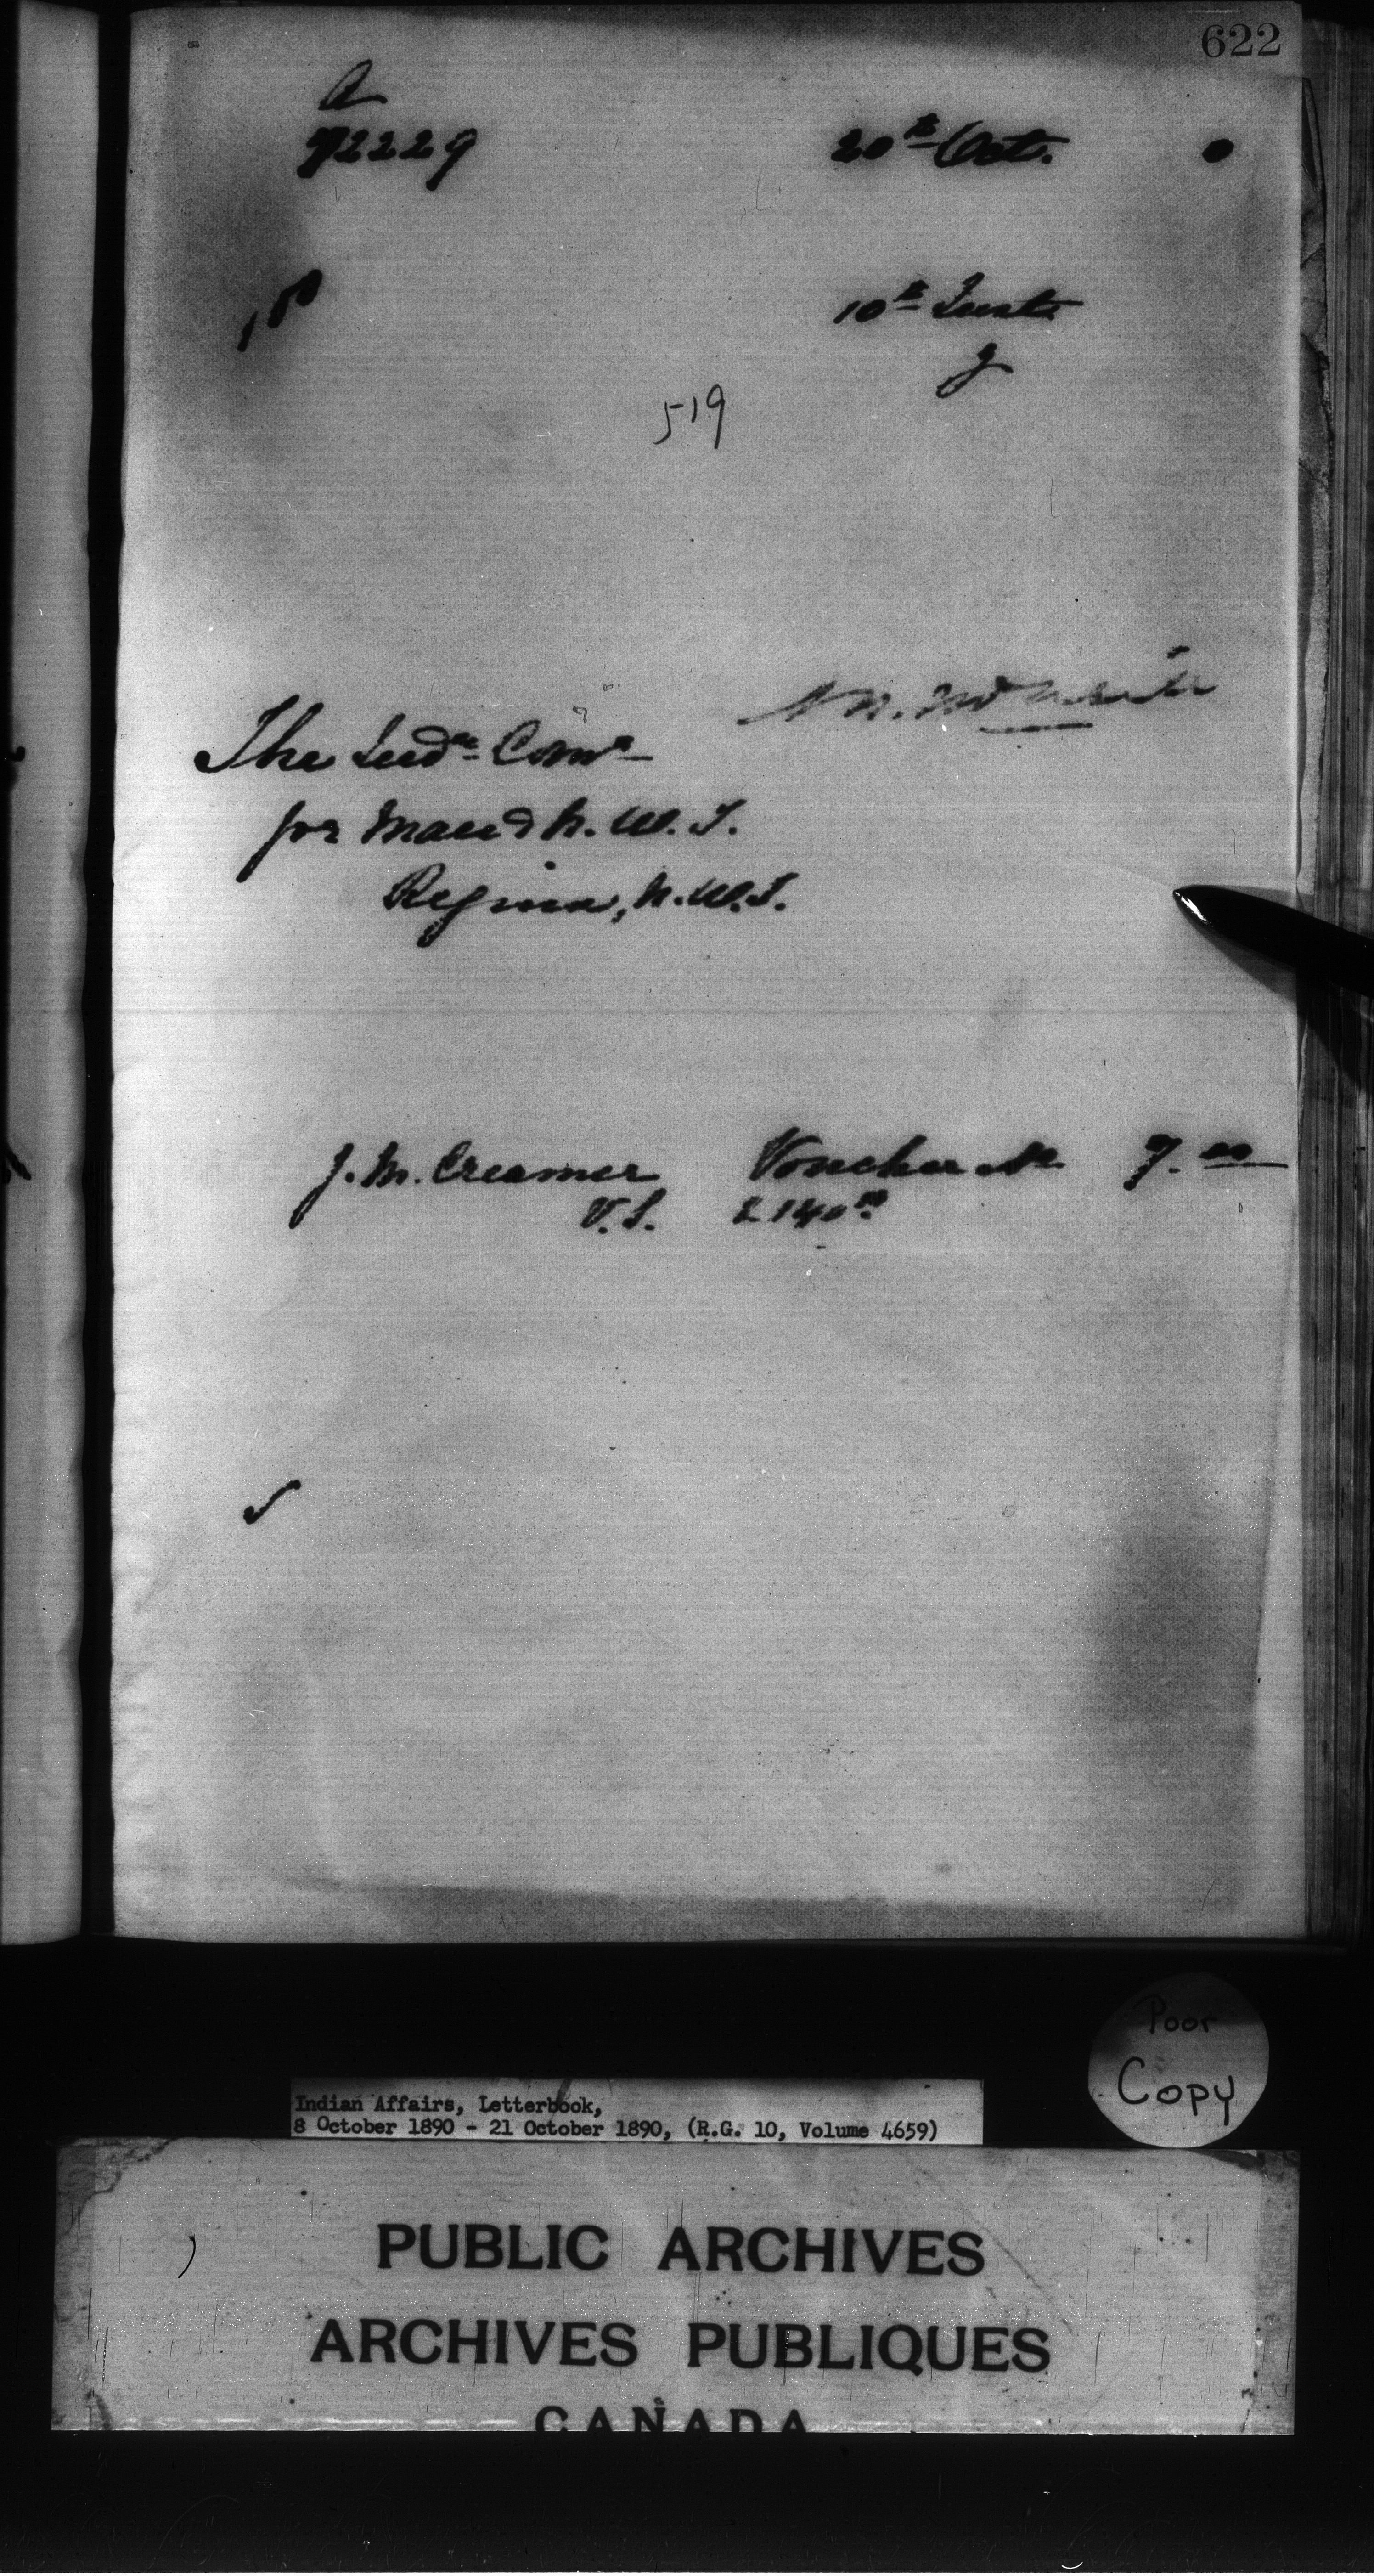 622
A
72229
20th Oct. 0
10th Inst.
519
The Indn Comr
for Man & N.W.T.
Regina, N.W.T.
J. M. Creamer Voucher No 7.00
V.S. 2140
Poor
Copy
Indian Affairs, Letterbook,
8 October 1890 - 21 October 1890, (R.G. 10, Volume 4659)
PUBLIC ARCHIVES
ARCHIVES PUBLIQUES
CANADA